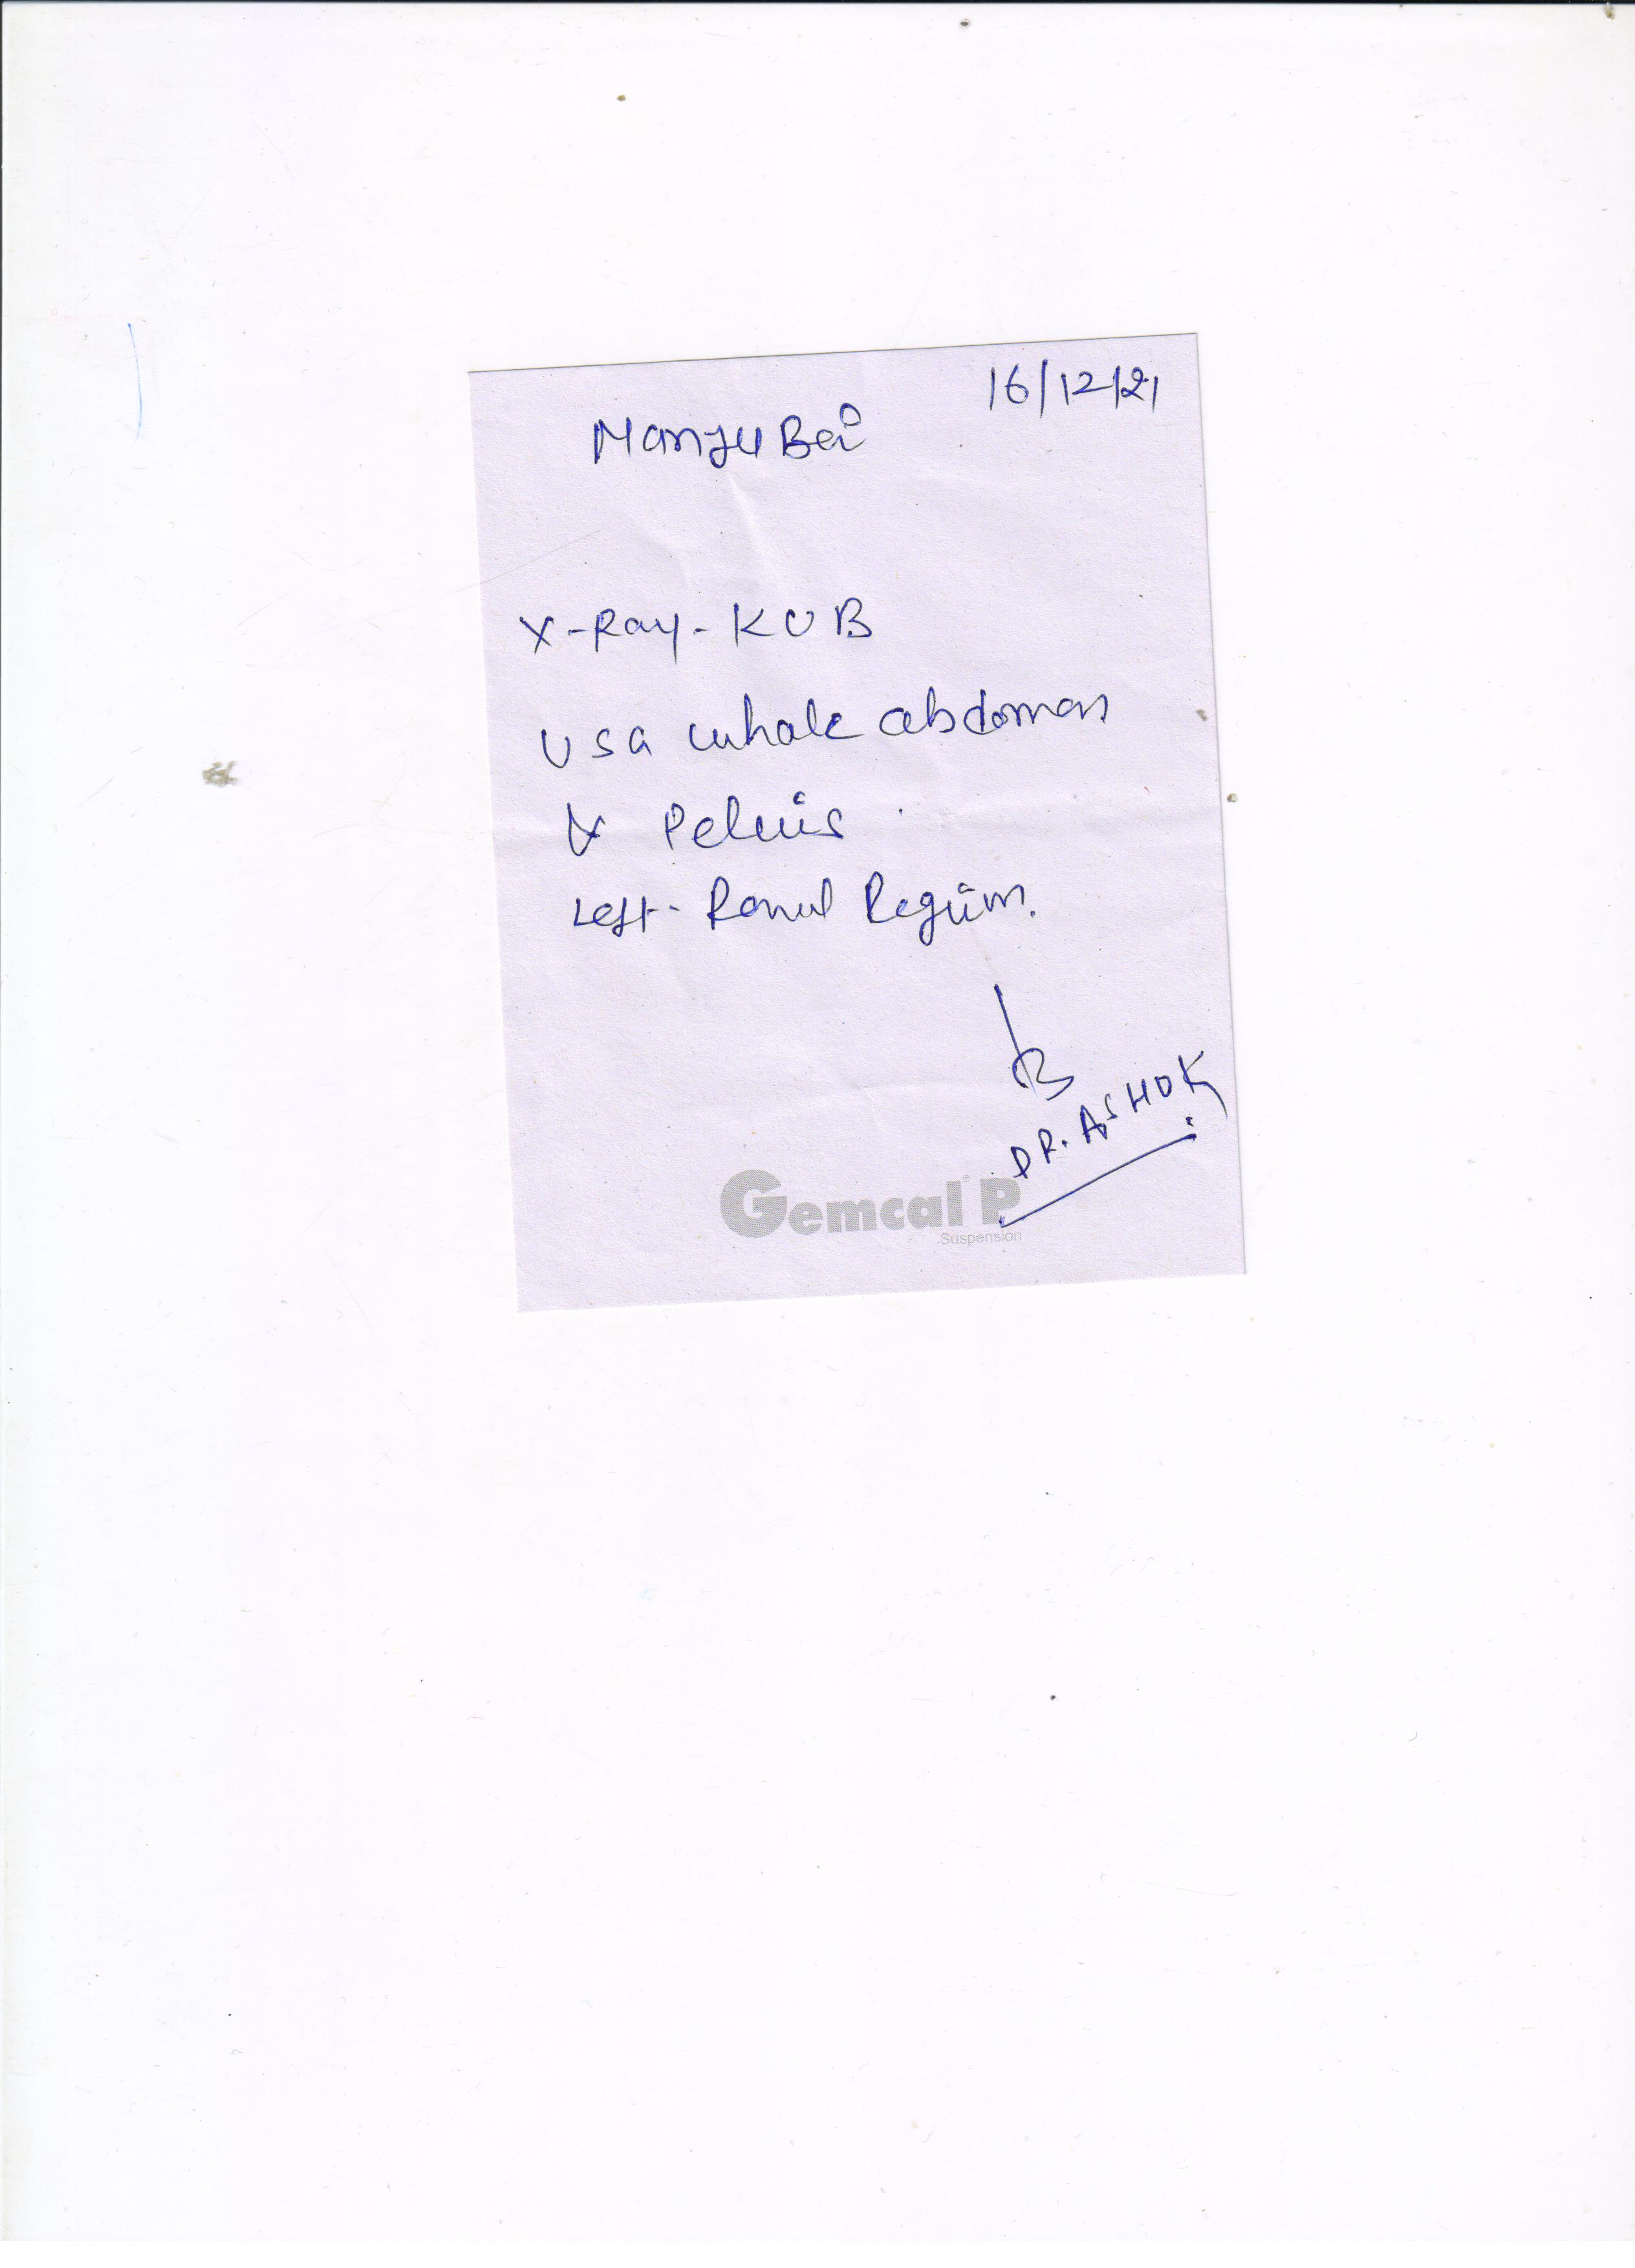 16/12/21
Manju Bai
X-Ray-KUB
USG whole abdomen
& Pelvis
Left- Renal Region.
DR. ASHOK
Gemcal P
Suspension